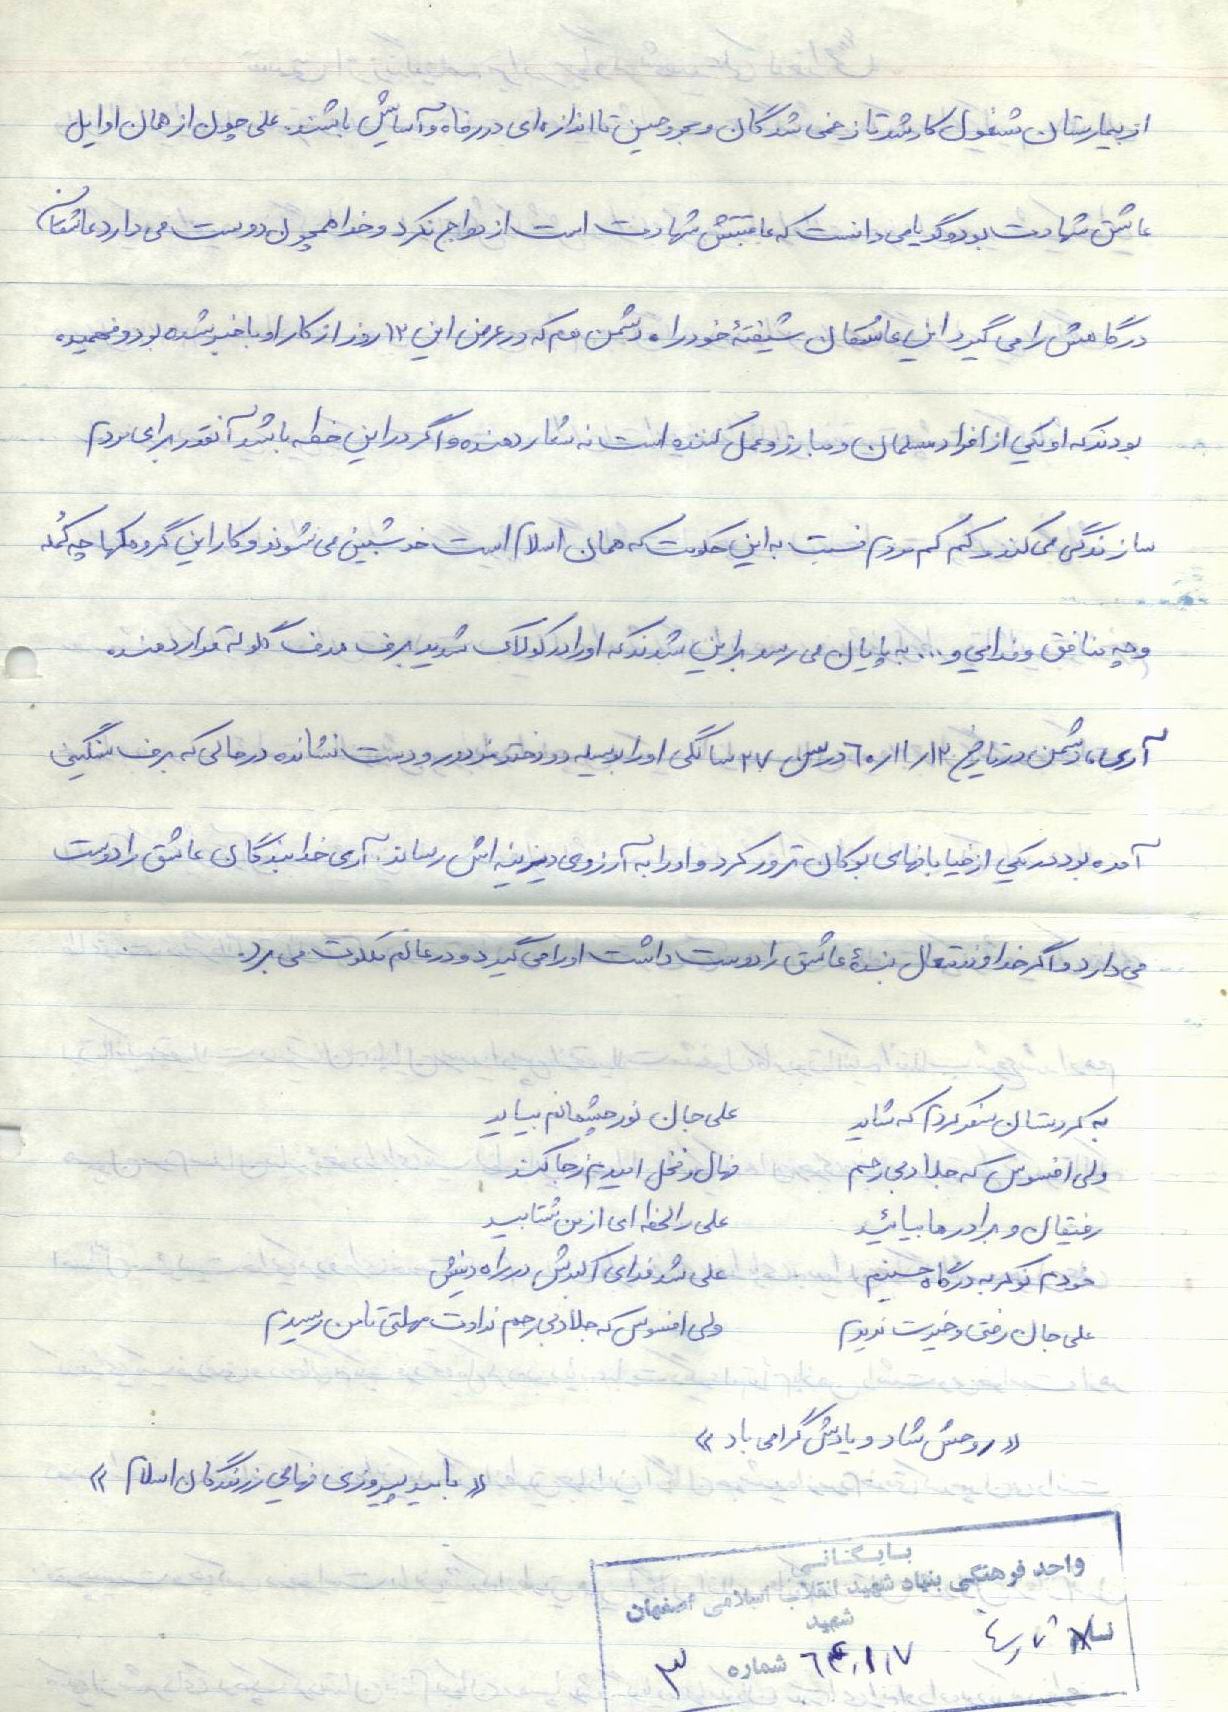 از بیمارستان مشغول کار شد تا زخمی شدگان و مجروحین تا اندازه‌ای در رفاه و آسایش باشند. علی چون از همان اوایل
عاشق شهادت بود و گویا می دانست که عاقبتش شهادت است ازدواج نکرد و خدا همچون دوست می دارد عاشقان
درگاهش را می گیرد این عاشقان شیفتهٔ خود را، دشمن هم که در عرض این ۱۲ روز از کار او با خبر شده بود و فهمیده
بودند که او یکی از افراد مسلمان و مبارز و عمل کننده است نه شعار دهنده و اگر در این خطه باشد آنقدر برای مردم
سازندگی می کند و کم کم مردم نسبت به این حکومت که همان اسلام است خوشبین می شوند و کار این گروهکها چه کمله
و چه منافق و فدایی و ... به پایان می رسد بر این شدند که او را در کولاک شدید برف هدف گلوله قرار دهند
آری، دشمن در تاریخ ۱۳ر۱۱ر۶۰ در سن ۲۷ سالگی او را بوسیله دو دختر مزدور و دست نشانده در حالی که برف سنگینی
آمده بود در یکی از خیابانهای بوکان ترور کرد و او را به آرزوی دیرینه اش رساند. آری خدا بندگان عاشق را دوست
می دارد و اگر خداوند متعال بندهٔ عاشق را دوست داشت او را می گیرد و در عالم ملکوت می برد.
به کردستان سفر کردم که شاید علی جان نور چشمانم بیاید
ولی افسوس که جلاد بی رحم نهال و نخل امیدم ز جا کند
رفیقان و برادرها بیائید علی را لحظه ای از من ستانید
خودم نوکر به درگاه حسینم علی شد فدای اکبرش در راه دینش
علی جان رفتی و خیرت ندیدم ولی افسوس که جلاد بی رحم نداد مهلتی تا من رسیدم
«روحش شاد و یادش گرامی باد»
«بامید پیروزی نهایی رزمندگان اسلام»
بایگانی
واحد فرهنگی بنیاد شهید انقلاب اسلامی اصفهان
شهید
شماره ۳